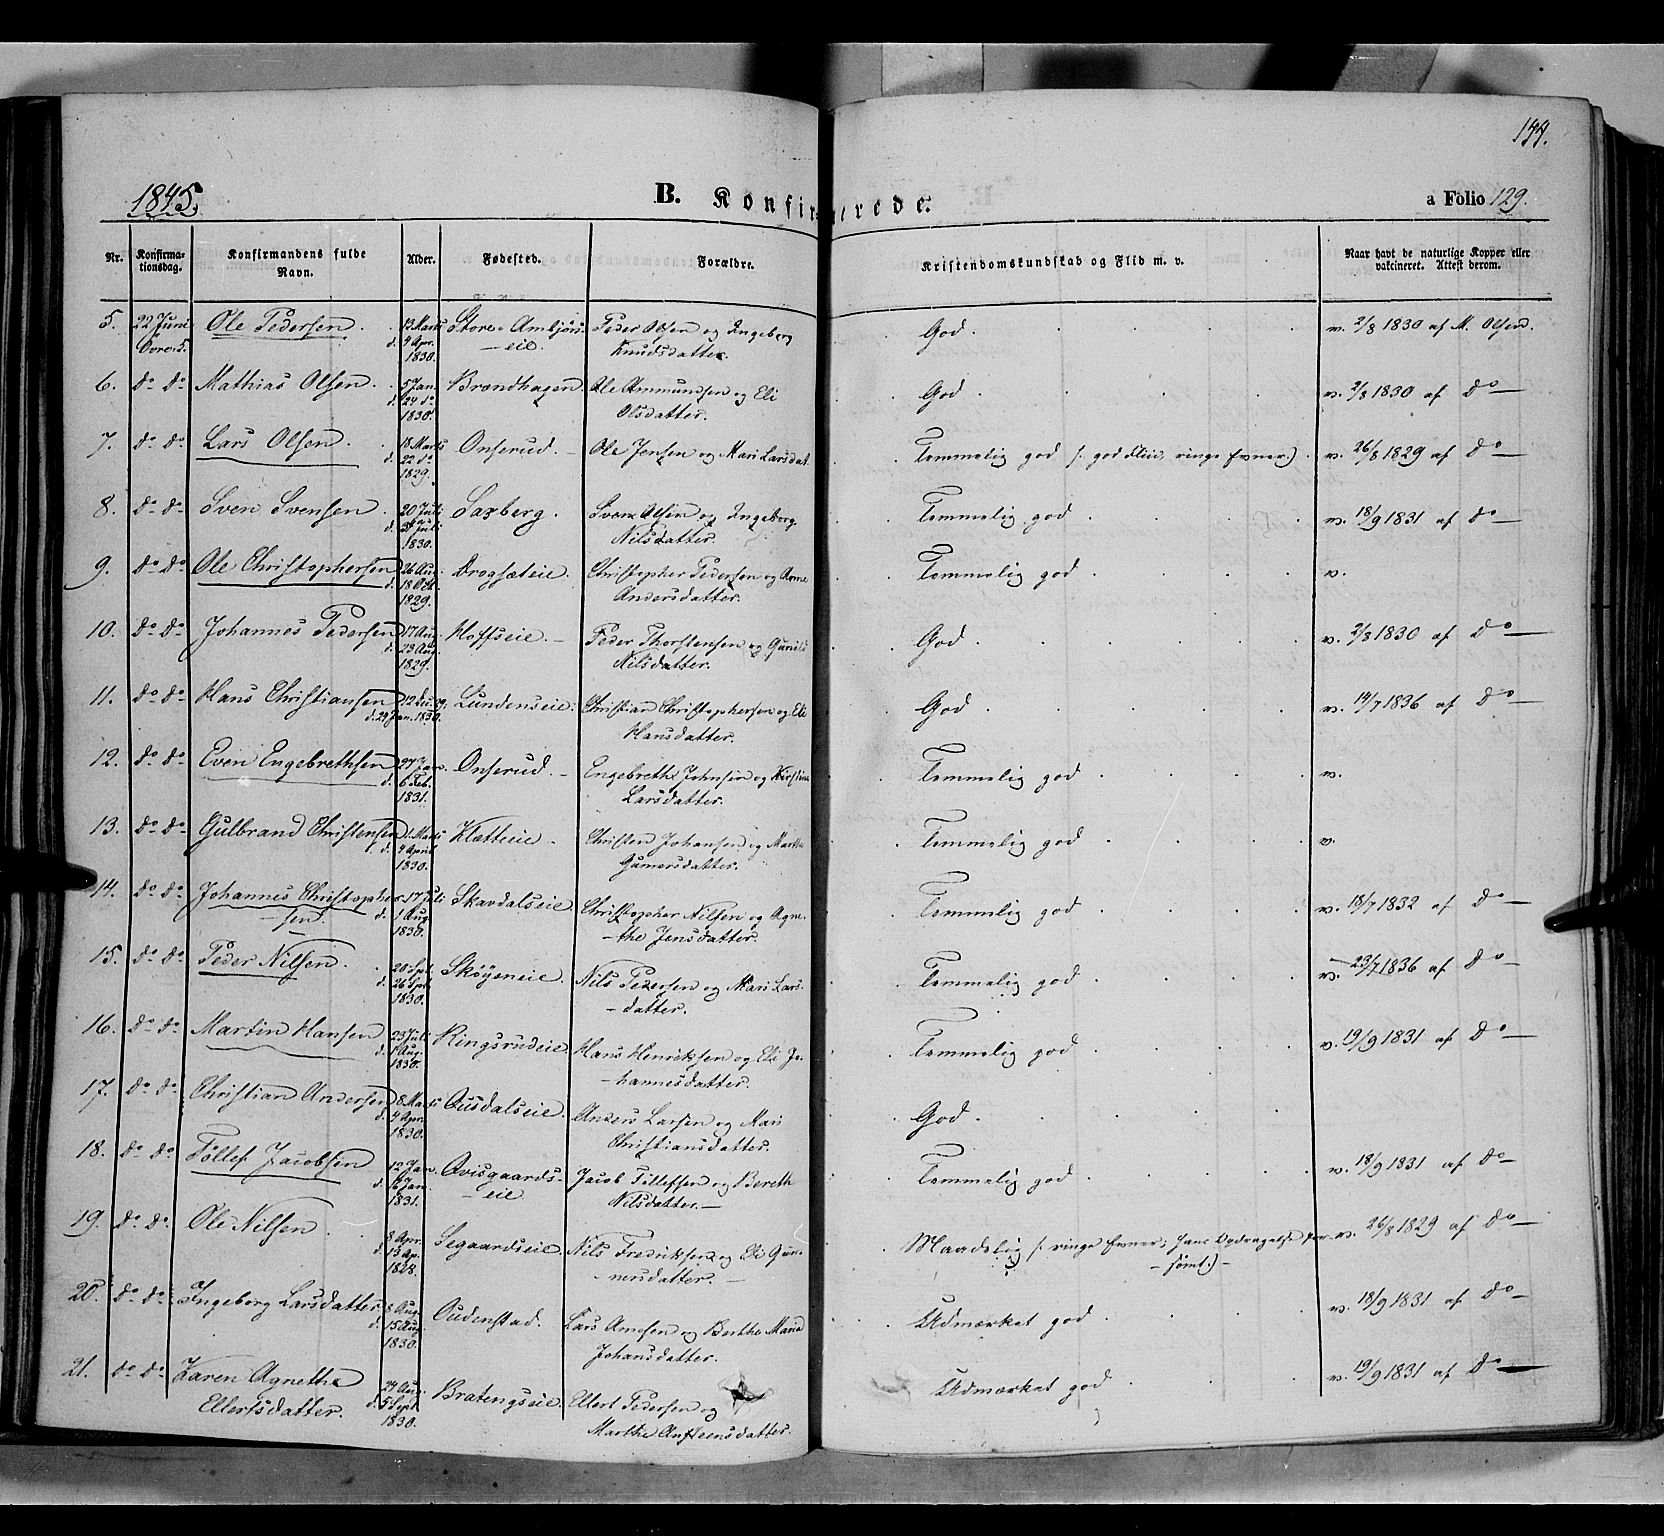 144.
1845. B. Konfirmerede. a Folio 129.
Nr. Konfirmationsdag. Konfirmandens fulde Navn. Alder. Fødested. Forældre. Kristendomskundskab og Flid m. v. Naar havt de naturlige Kopper eller vaktineret. Attest derom.
5. 22 Juni Ovre. S. Ole Pedersen. 12 Marts d. 4 Apr. 1830. Store-Ambjørs-eie. Peder Olsen og Ingeborg Knudsdatter. God. v. 2/8 1830 af M. Olsen.
6. do do Mathias Olsen. 5 Jan. d. 24 do 1830. Brændhagen. Ole Ammundsen og Eli Olsdatter. God v. 2/8 1830 af do
7. do do Lars Olsen. 18 Marts d. 22 do 1829. Onserud. Ole Jensen og Mari Larsdat. Temmelig god (: god Flid, ringe Evner:) v. 26/8 1829 af do
8. do do Sven Svensen. 20 Juli d. Juli 1830. Saxberg. Sven Olsen og Ingeborg Nilsdatter. Temmelig god v. 18/9 1831 af do
9. do do Ole Christophersen 26 Aug. d. 18 Oct. 1829. Drogsæteie. Christopher Pedersen og Anne Andersdatter. Temmelig god v.
10. do do Johannes Pedersen 17 Aug. d. 23 Aug. 1829. Hoffseie. Peder Thorstensen og Gunild Nilsdatter. God. v. 2/8 1830 af do
11. do do Hans Christiansen 12 Dec. 29. d. 24 Jan. 1830. Lundenseie. Christian Christophersen og Eli Hansdatter. God v. 14/7 1836 af do
12. do do Even Engebrethsen 27 Jan. d. 6 Feb. 1831. Onserud. Engebreth Johnsen og Kirstine Larsdatter. Temmelig god v.
13. do do Gulbrand Christensen 1. Marts d. 4 April 1830. Klætteie. Christen Johansen og Marthe Gunersdatter. Temmelig god v.
14. do do Johannes Christophersen. 17 Juli d. 1 Aug. 1830. Skavdalseie. Christopher Nilsen og Agnethe Jensdatter. Temmelig god v. 18/7 1832 af do
15. do do Peder Nilsen. 20 Spt. d. 26 Spt. 1830. Skøyeneie. Nils Pedersen og Mari Larsdatter. Temmelig god v. 23/7 1836 af do
16. do do Martin Hansen 23 Juli d. 1 Aug. 1830. Ringsrudeie. Hans Henriksen og Eli Johannesdatter. Temmelig god v. 19/9 1831 af do
17. do do Christian Andersen 8 Marts d. 4 Apr. 1830. Ausdalseie. Anders Larsen og Mari Christiansdatter. God.
18. do do Tollef Jacobsen 12 Jan. d. 16 Jan. 1831. Avisgaards-eie Jacob Tollefsen og Bereth Nilsdatter. Temmelig god v. 18/9 1831 af do
19. do do Ole Nilsen 8 Apr. d. 13 Ap. 1828. Segaardseie. Nils Fredriksen og Eli Gunnersdatter. Maadelig (: ringe Evner, hans Opdragelse forsømt:) v. 26/8 1829 af do
20. do do Ingeborg Larsdatter 8 Aug. d. 15 Aug. 1830. Oudenstad. Lars Arnesen og Berthe Maria Johansdatter. Udmærket god v. 18/9 1831 af do
21. do do Karen Agnethe Ellertsdatter. 24 Aug. d. 5 Sept. 1830. Bratengseie. Ellert Pedersen og Marthe Ansteensdatter. Udmærket god v. 19/9 1831 af do